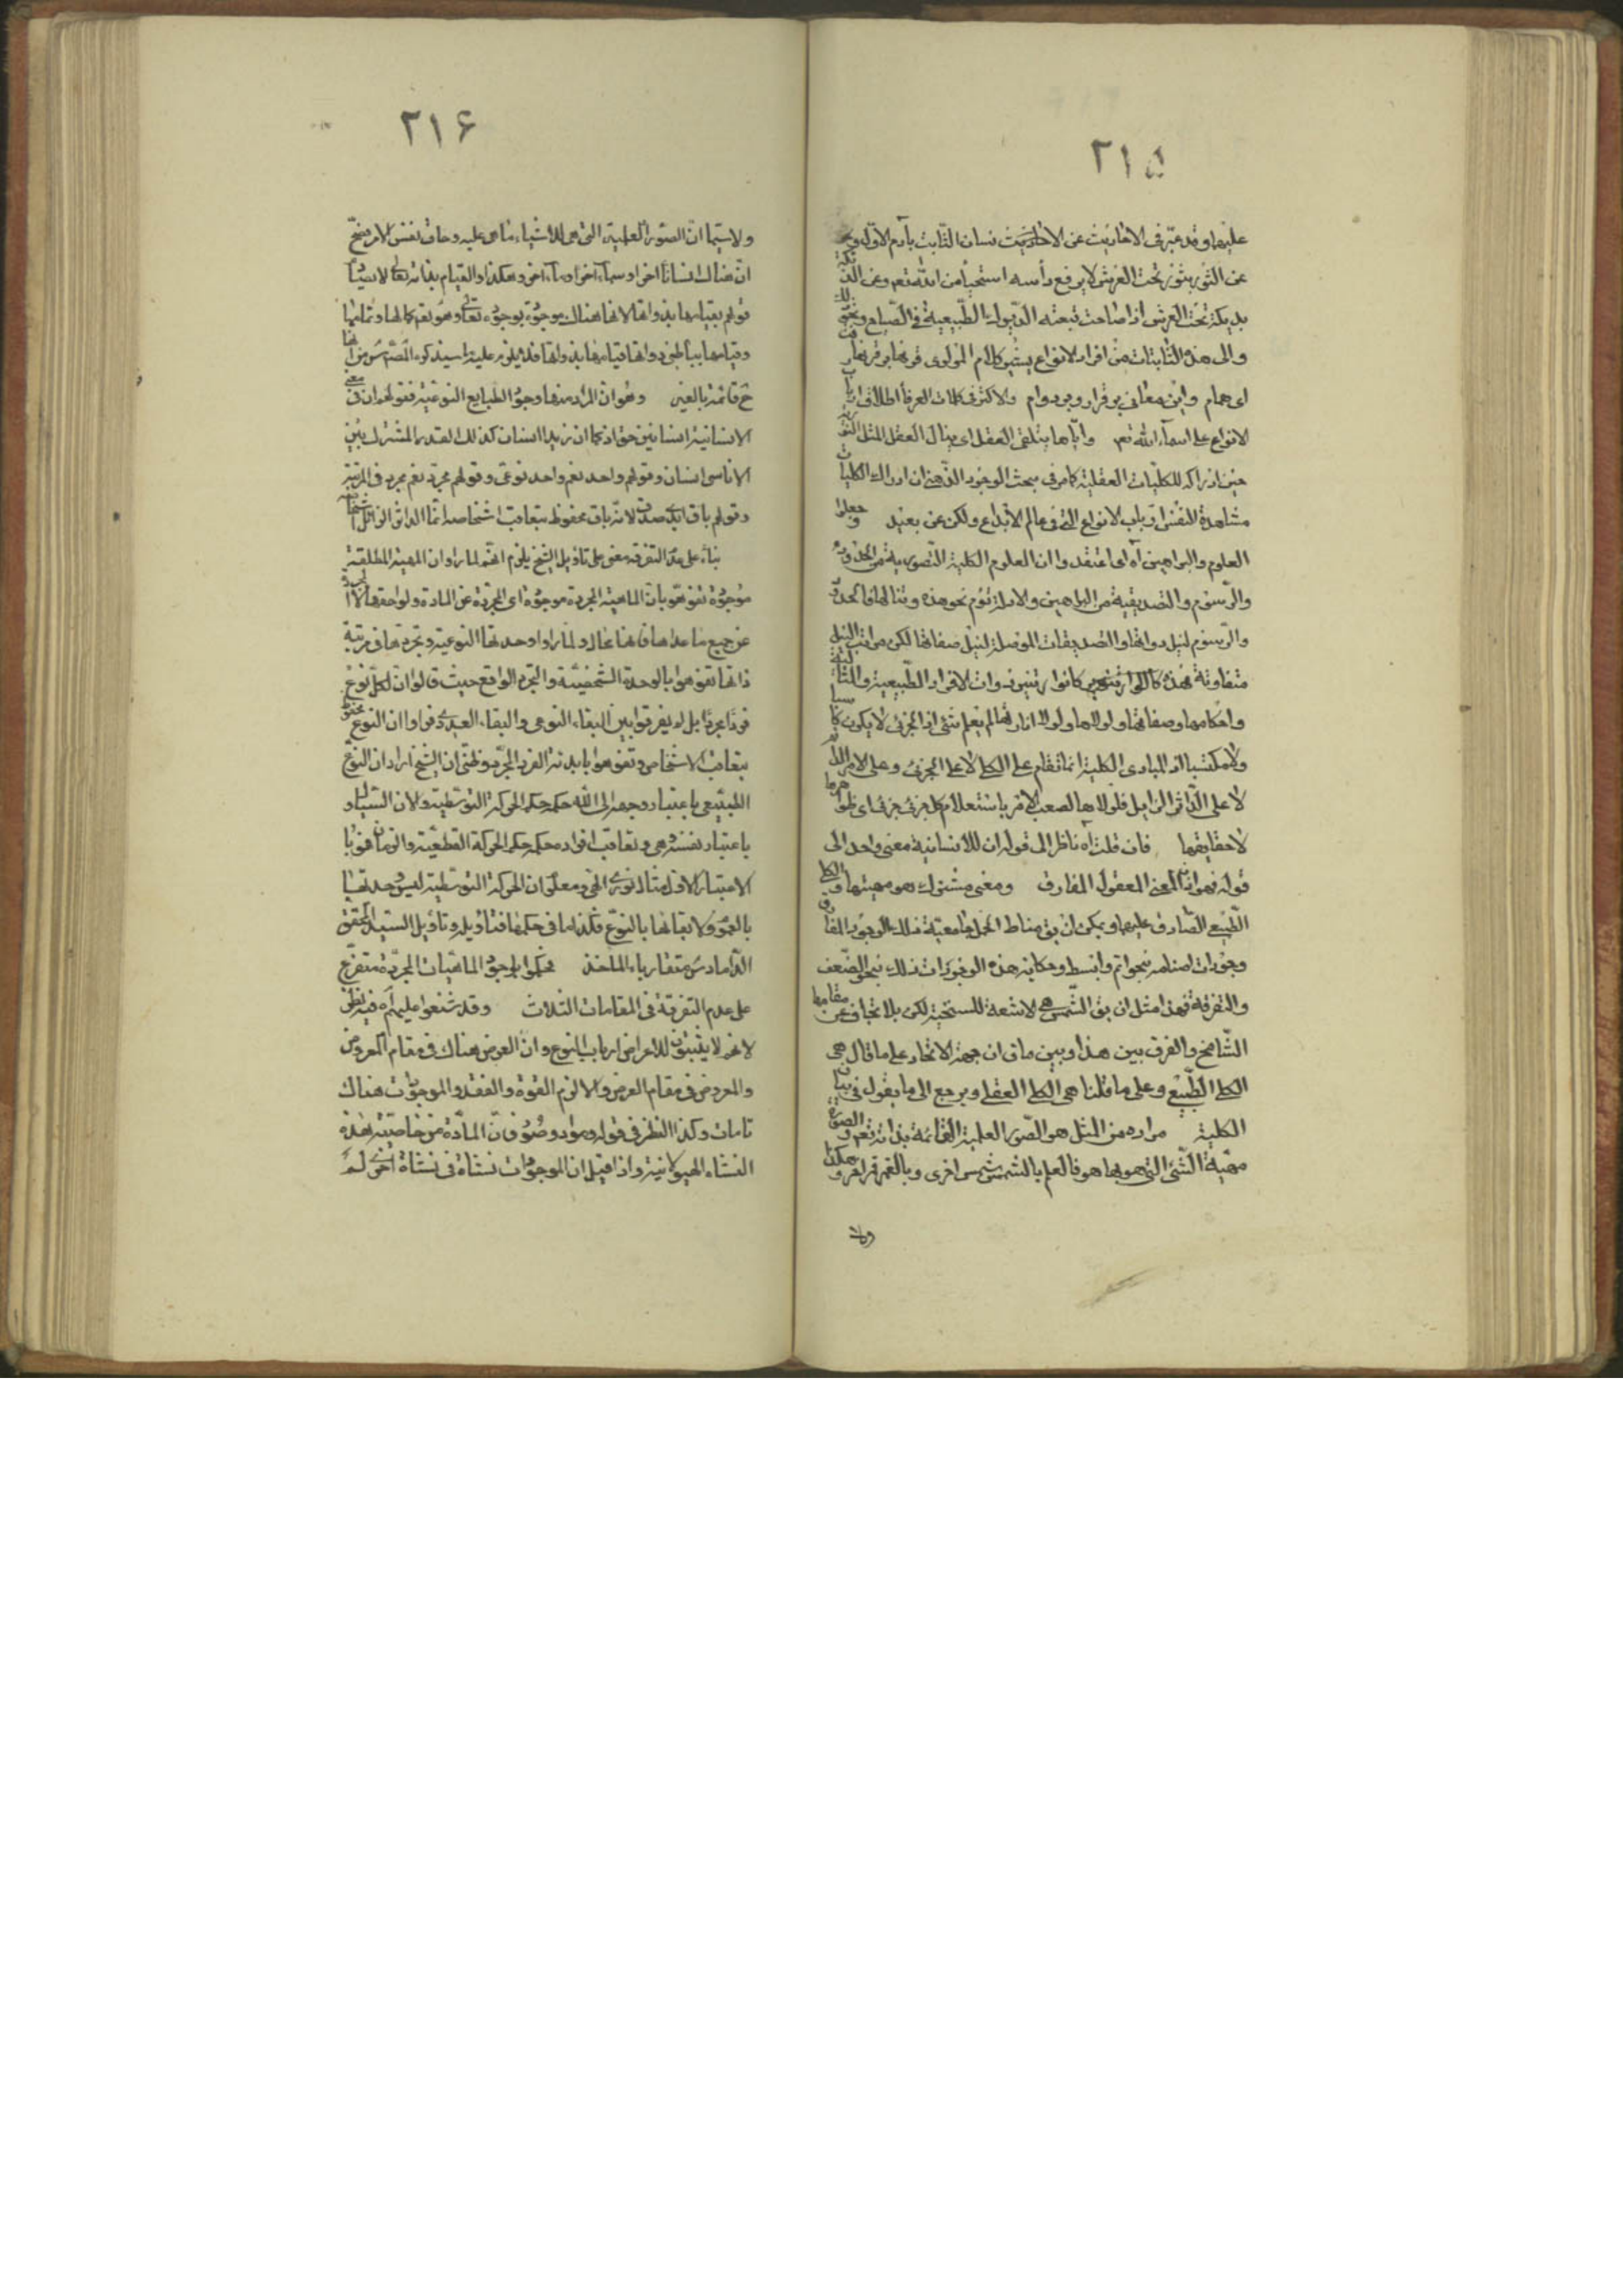 ٢١۵
عليها وقد عبّر فى الاحاديث عن الانسان الثابت بآدم الاوّل و
عن الثور بثور تحت العرش لا يرفع رأسه استحياء من الله تعم وعن الديكة
بديكة تحت العرش اذا صاحت تبعته الديوك الطبيعية فى الصياح
والى هذه الثابتات من افراد الانواع يشير كلام المولوى قرنها بر قرنها رفت
اى همام واين معانى بر قرار وبر دوام والاكثر فى كلمات العرفا اطلاق ارباب
الانواع على اسماء الله تعم وايّاها يتلقى العقل اى ينال العقل المثل النورية
حين ادراكه للكليات العقلية كما مر فى مبحث الوجود الذهنى ان ادراك الكليات
مشاهدة النفس ارباب الانواع التى فى عالم الابداع ولكن عن بعيد وجعلوا
العلوم والبراهين آه اى اعتقدوا ان العلوم الكلية التصورية من الحدود
والرسوم والتصديقية من البراهين والادلة تؤم نحو هذه وتنالها فالحدود
والرسوم لنيل ذواتها والتصديقات الموصلة لنيل صفاتها لكن مراتب النيل
متفاوتة
واحكامها وصفاتها ولولاها ولولا انارتها لم يعلم شئ اذ الجزئى لا يكون كاسبا
ولا مكتسبا اذ المبادى الكلية انما تقام على الكلى لا على الجزئى وعلى الامر الدائم
لا على الداثر الزايل فلولاها لصعب الامر باستعلام كل جزئى جزئى اى ظواهرها
لا حقايقها فان قلت آه ناظر الى قوله ان للانسانية معنى واحد الى
قوله فهو اذن المعنى المعقول المفارق ومعنى مشترك هو مهيتها والكلى
الطبيعى الصادق عليها ويمكن ان يق مناط الحمل هنا معية ذلك الوجود المفارق
وجودات اصنامه بنحو اتم وابسط وحكاية هذه الوجودات ذلك بنحو الضعف
والتفرقة فهذا مثل ان يق الشمس هى الاشعة للسنخية لكن بلا تجاف عن مقامها
الشامخ والفرق بين هذا وبين ماق ان جهة الاتحاد على ما قال هى
الكلى الطبيعى وعلى ما قلنا هى الكلى العقلى ويرجع الى ما يقول فى بيان
الكلية مراده من المثل هو الصور العلمية القائمة بذاته تعم والصورة
مهية الشئ التى هو بها هو فالعلم بالشمس شمس اخرى وبالقمر قمر اخر وهكذا
ولا
٢١۶
ولا سيما ان الصورة العلمية التى هى للاشياء ما هى عليه وحاق نفس الامر فصحّ
ان هناك انسانا اخر او سماء اخر او ماء اخر وهكذا والقيام بذاته تعالى لا يصيب
قولهم بقيامها بذواتها لانها هناك موجودة بوجوده تعالى وهو تعم كمالها وتمامها
وقيامها بباطن ذواتها قيامها بذواتها فلا يلزم عليه ما سيذكره المص س من انها
ح قائمة بالغير وهو ان المراد منها وجود الطبايع النوعية فقولهم ان فى معنى
الانسانية انسانين حق اذ كما ان زيدا انسان كذلك القدر المشترك بين
الاناسى انسان وقولهم واحد نعم واحد نوعى وقولهم مجرد نعم مجرد فى المرتبة
وقولهم باق ابدى صدق لانه باق محفوظ بتعاقب اشخاصه انما الداثر الزائل اشخاصه
بناء على عدم التفرقة معنى على تاويل الشيخ يلزم انهم لما راوا ان المهية المطلقة
موجودة تفوهوا بان الماهية المجردة موجودة اى المجردة عن المادة ولواحقها لا المجردة
عن جميع ما عداها فانها محال ولما راوا وحدتها النوعية وتجردها فى مرتبة
ذاتها تفوهوا بالوحدة الشخصية والتجرد الواقع حيث قالوا ان لكل نوع
فردا مجردا بل لم يفرقوا بين البقاء النوعى والبقاء العددى فراوا ان النوع محفوظ
بتعاقب الاشخاص وتفوهوا بابدية الفرد المجرد وظنى ان الشيخ اراد ان النوع
الطبيعى باعتبار وجهه الى الله حكمه حكم الحركة التوسطية والان السيال
باعتبار نفسه وتعاقب افراده حكمه حكم الحركة القطعية والزمان فهو با
الاعتبار الاول مثال نورى الهى ومعلوم ان الحركة التوسطية ليس وحدتها
بالعموم ولا بقائها بالنوع فكذا ما فى حكمها فتاويله وتاويل السيد المحقق
الداماد س متقاربا الماخذ فحكموا بوجود الماهيات المجردة متفرع
على عدم التفرقة فى المقامات الثلاث وقد شنعوا عليهم آه فيه نظر
لانهم لا يثبتون للاعراض ارباب انواع وان العرض هناك فى مقام المعروض
والمعروض فى مقام العرض واللازم القوة والفقد والموجودات هناك
تامات وكذا النظر فى قوله ومواد وصور فان المادة من خاصية هذه
النشاة الهيولانية واذا قيل ان الموجودات نشاة فى نشاة اخرى لم